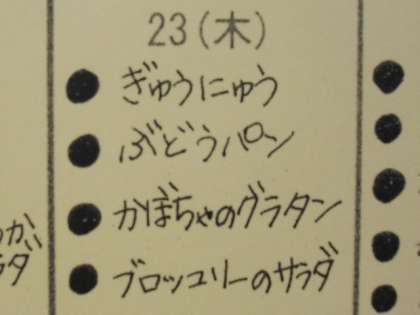 23(木)
● ぎゅうにゅう
● ぶどうパン
● かぼちゃのグラタン
● ブロッコリーのサラダ